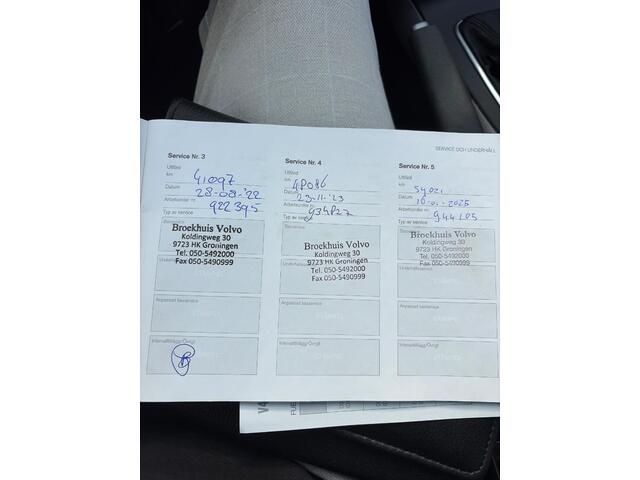 SERVICE OCH UNDERHÅLL
Service Nr. 3
Utförd
km 41097
Datum 23-08-'22
Arbetsorder nr. 922395
Typ av service
Basservice
Broekhuis Volvo
Koldingweg 30
9723 HK Groningen
Tel. 050-5492000
Fax 050-5490999
Anpassad basservice
Intervalltillägg/Övrigt
Service Nr. 4
Utförd
km
Datum 23-11-'23
Arbetsorder nr.
Typ av service
Basservice
Broekhuis Volvo
Koldingweg 30
9723 HK Groningen
Tel. 050-5492000
Fax 050-5490999
Anpassad basservice
Intervalltillägg/Övrigt
Service Nr. 5
Utförd
km
Datum
Arbetsorder nr.
Typ av service
Basservice
Broekhuis Volvo
Koldingweg 30
9723 HK Groningen
Tel. 050-5492000
Fax 050-5490999
Anpassad basservice
Intervalltillägg/Övrigt